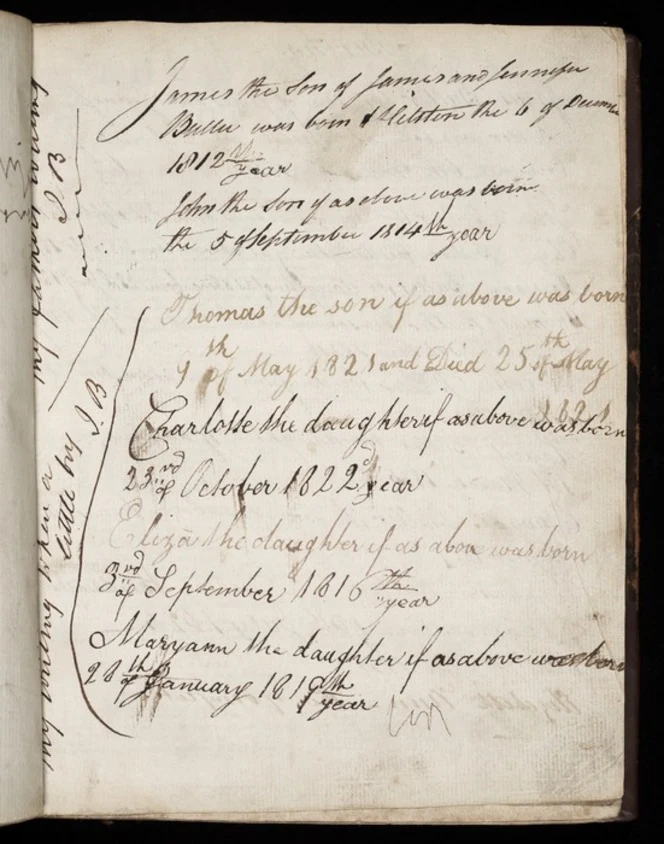 James the Son of James and Jennefer
Buller was born at Helston the 6 of Decemr
1812 th year
John the Son of as above was born
the 5 of September 1814 th year
Thomas the son if as above was born
9 th of May 1821 and Died 25 th of May
1821
Charlotte the daughter if as above was born
23 rd of October 1822 d year
Eliza the daughter if as above was born
3 rd of September 1816 th year
Maryann the daughter if as above was born
28 th of January 1819 th year
my fathers writing
J B
my writing when a
little boy J. B